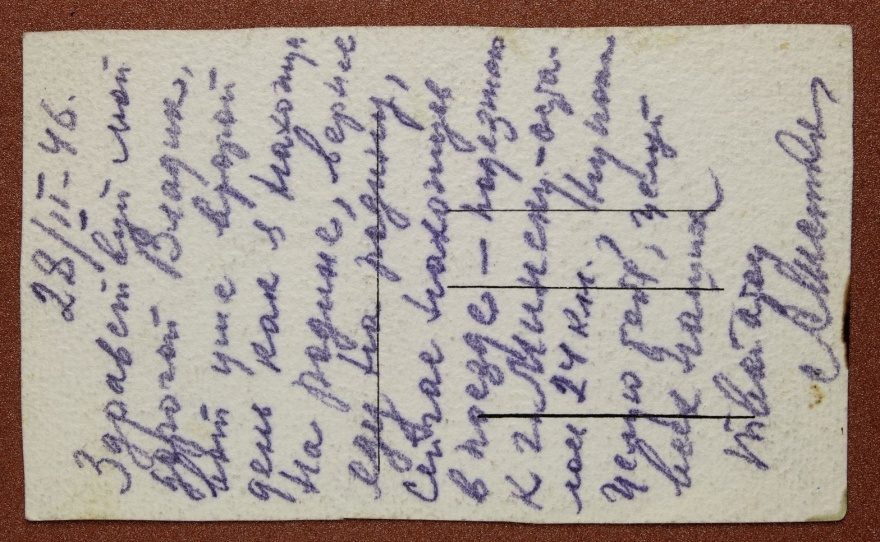 28/II-46.
Здравствуй мой
дорогой Владик,
вот уже второй
день как я нахожусь
на родине, вернее
еду на родину,
сейчас нахожусь
в поезде – подъезжаю
к г. Минску – оста
лось 24 км.
Целую тебя, целуй
всех наших
твой отец